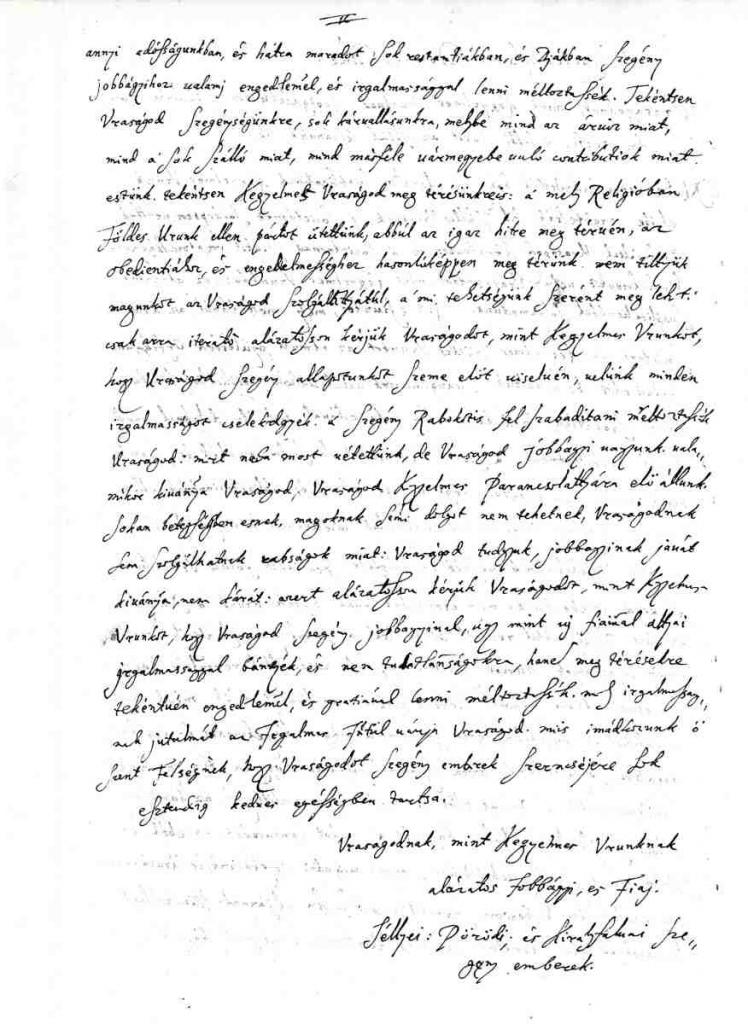 II
annyi adósságunkban, és hátra maradot sok restantiákban, és Dijákban Szegény
jobbágyihoz valamj engedelemél, és irgalmassággal lenni méltoztassék. Tekéntsen
Vraságod Szegénységünkre, sok kárvallásunkra, melybe mind az árviz miat,
mind a sok Szálló miat, mind másféle vármegyebe való contributiok miat
estünk. tekéntsen Kegyelmes Vraságod meg térésünkreis: á mely Religióban
Földes Urunk ellen pártot ütöttünk, abbúl az igaz hitre meg tervén, az
obedientiához, és engedelmességhez hasonlóképpen meg térünk. nem tiltjuk
magunkot az Vraságod Szolgálattjátúl, a' mi tehetségünk Szerént meg lehet:
csak arra iterató alázatosson kérjük Vraságodot, mint Kegyelmes Vrunkot,
hogy Vraságod Szegény állapotunkot Szeme elöt viselvén, velünk minden
irgalmasságot cselekedgyék. á Szegény Rabokotis fel szabaditani méltoztassék
Vraságod: mert nem most vétettünk, de Vraságod jobbagyi vagyunk. vala„
mikor kivánja Vraságod, Vraságod Kgyelmes Parancsolattjára elö állunk.
Sokan betegségben esnek, magoknak semi dolgot nem tehetnek, Vraságodnak
sem szolgálhatnak rabságok miat: Vraságod tudgyuk, jobbagyinak javát
kivánja, nem kárát: azert alázatosson kérjük Vraságodot, mint Kgyelmes
Vrunkot, hogy Vraságod Szegény jobbagyinal, úgy mint uj fiaival áttyai
irgalmassággal bánnyék, és nem tudatlanságokra, hanem meg térésekre
tekéntvén engedelemél, és gratiával lenni méltoztassék. mely irgalmasság„
nak jutalmát az Irgalmas Jstúl várja Vraságod. mis imádkozunk ő
Szent Felségnek, hogy Vraságodot Szegény emberek Szerencséjére sok
esztendeig kedves egésségben tartsa.
Vraságodnak, mint Kegyelmes Vrunknak
alázatos Jobbágyi, es Fiaj.
Séllyei: Pörödi, és Királyfalvai Sze„
gény emberek.